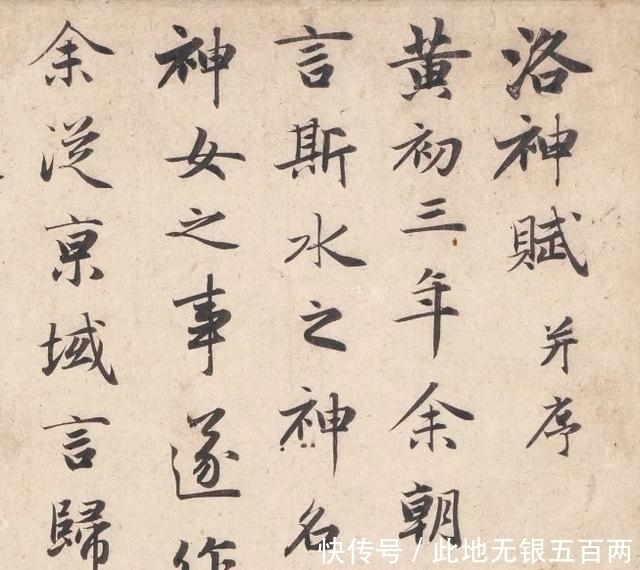 洛神賦并序
黄初三年余朝
言斯水之神名
神女之事遂作
余從京域言歸
快传号/此地无银五百两